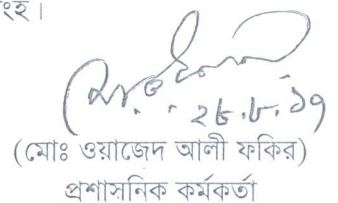 ংহ।
২৮.৮.১৭
(মোঃ ওয়াজেদ আলী ফকির)
প্রশাসনিক কর্মকর্তা